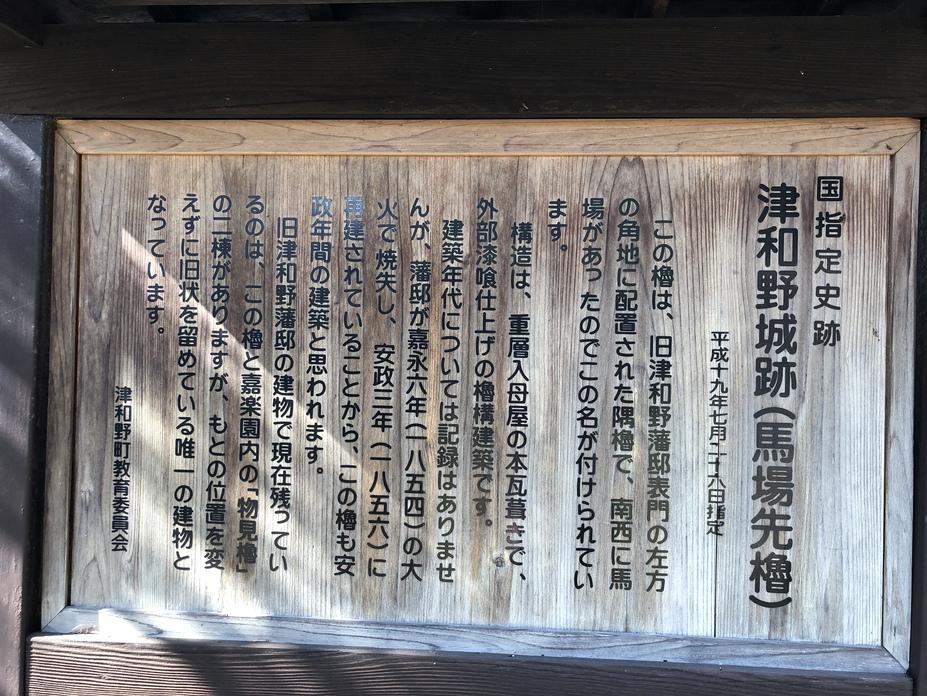 国指定史跡
津和野城跡（馬場先櫓）
平成十九年七月二十六日指定
この櫓は、旧津和野藩邸表門の左方
の角地に配置された隅櫓で、南西に馬
場があったのでこの名が付けられてい
ます。
構造は、重層入母屋の本瓦葺きで、
外部漆喰仕上げの櫓構建築です。
建築年代については記録はありませ
んが、藩邸が嘉永六年（一八五四）の大
火で焼失し、安政三年（一八五六）に
再建されていることから、この櫓も安
政年間の建築と思われます。
旧津和野藩邸の建物で現在残ってい
るのは、この櫓と嘉楽園内の「物見櫓」
の二棟がありますが、もとの位置を変
えずに旧状を留めている唯一の建物と
なっています。
津和野町教育委員会